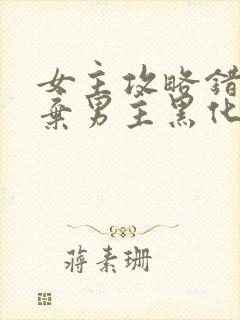 女主攻略错
弃男主黑化
蒋素珊